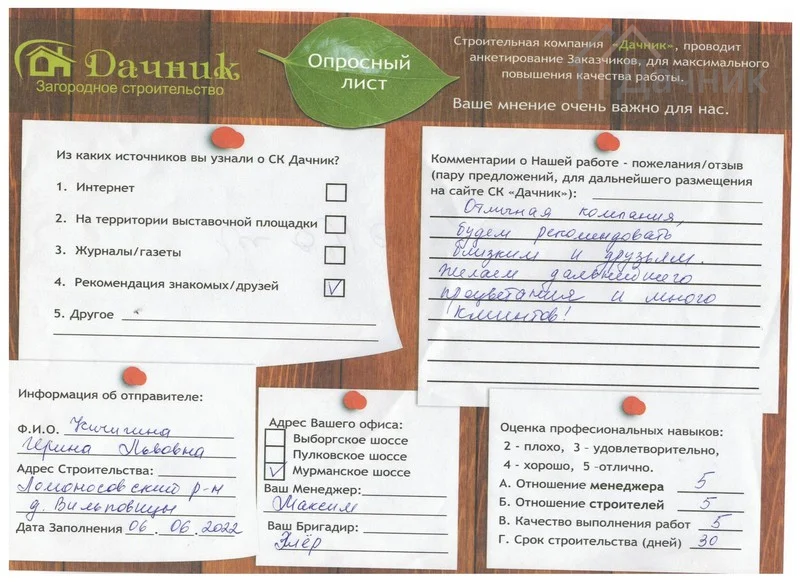 Дачник
Загородное строительство
Опросный
лист
Строительная компания «Дачник», проводит
анкетирование Заказчиков, для максимального
повышения качества работы.
Ваше мнение очень важно для нас.
Дачник
Из каких источников вы узнали о СК Дачник?
1. Интернет
2. На территории выставочной площадки
3. Журналы/газеты
4. Рекомендация знакомых/друзей
5. Другое
Комментарии о Нашей работе - пожелания/отзыв
(пару предложений, для дальнейшего размещения
на сайте СК «Дачник»):
Отличная компания,
будем рекомендовать
близким и друзьям.
Желаем дальнейшего
процветания и много
клиентов!
Информация об отправителе:
Ф.И.О. Кичигина
Герина Львовна
Адрес Строительства:
Ломоносовский р-н
д. Вильповицы
Дата Заполнения 06. 06. 2022
Адрес Вашего офиса:
Выборгское шоссе
Пулковское шоссе
Мурманское шоссе
Ваш Менеджер:
Максим
Ваш Бригадир:
Оценка професиональных навыков:
2 - плохо, 3 - удовлетворительно,
4 - хорошо, 5 -отлично.
А. Отношение менеджера 5
Б. Отношение строителей 5
В. Качество выполнения работ 5
Г. Срок строительства (дней) 30